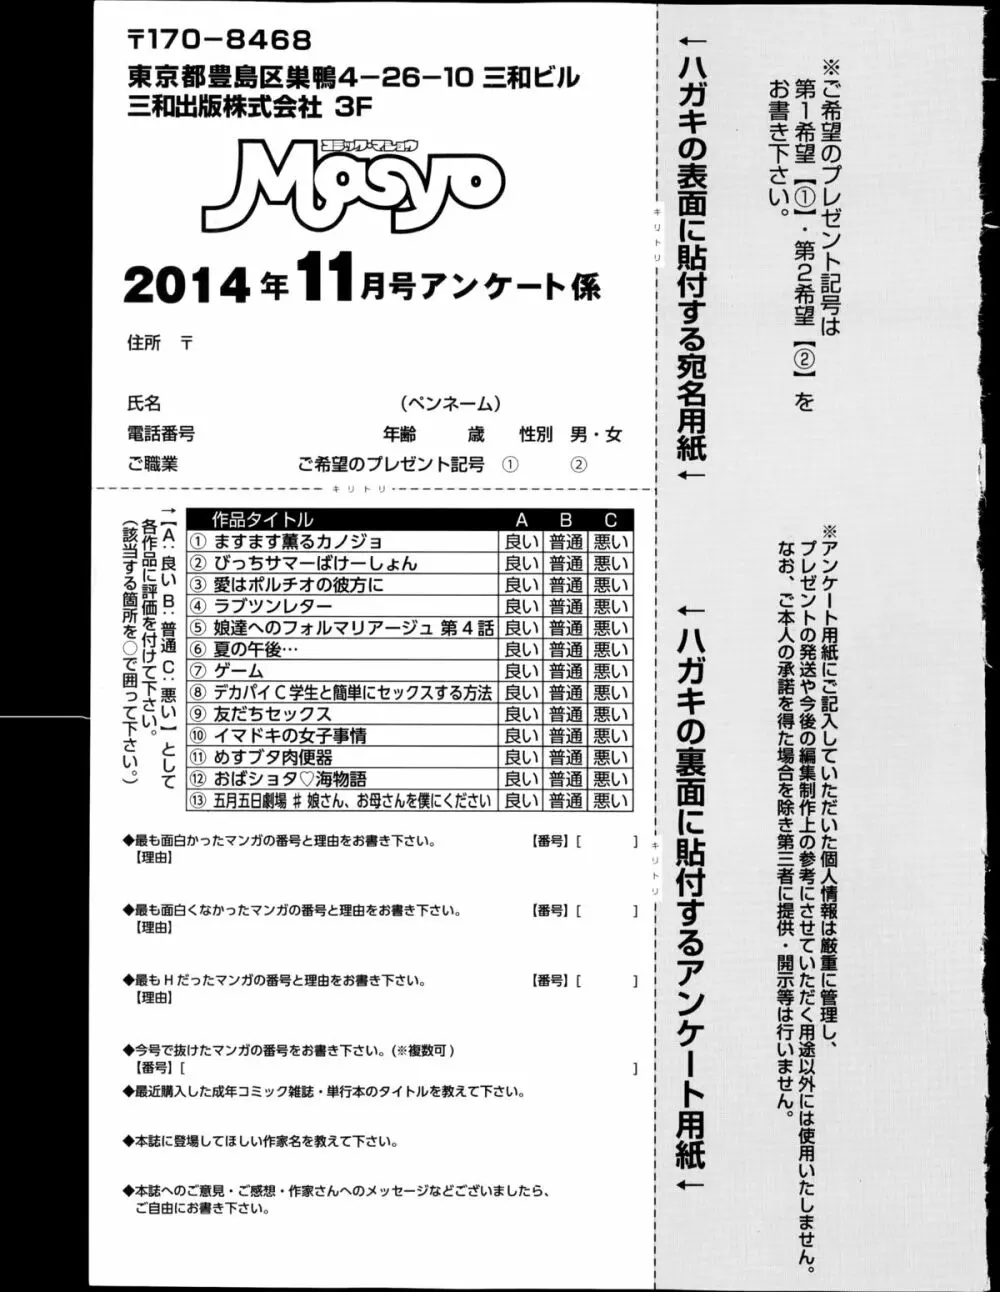 〒170-8468
東京都豊島区巣鴨4-26-10 三和ビル
三和出版株式会社 3F
コミック・マショウ
Masyo
2014年11月号アンケート係
住所 〒
氏名 (ペンネーム)
電話番号 年齢 歳 性別 男・女
ご職業 ご希望のプレゼント記号 ① ②
キリトリ
→【A:良い B:普通 C:悪い】として
各作品に評価を付けて下さい。
(該当する箇所を○で囲って下さい。)
作品タイトル A B C
① ますます薫るカノジョ 良い 普通 悪い
② びっちサマーばけーしょん 良い 普通 悪い
③ 愛はポルチオの彼方に 良い 普通 悪い
④ ラブツンレター 良い 普通 悪い
⑤ 娘達へのフォルマリアージュ 第4話 良い 普通 悪い
⑥ 夏の午後… 良い 普通 悪い
⑦ ゲーム 良い 普通 悪い
⑧ デカパイC学生と簡単にセックスする方法 良い 普通 悪い
⑨ 友だちセックス 良い 普通 悪い
⑩ イマドキの女子事情 良い 普通 悪い
⑪ めすブタ肉便器 良い 普通 悪い
⑫ おばショタ♡海物語 良い 普通 悪い
⑬ 五月五日劇場 #娘さん、お母さんを僕にください 良い 普通 悪い
◆最も面白かったマンガの番号と理由をお書き下さい。 【番号】[ ]
【理由】
◆最も面白くなかったマンガの番号と理由をお書き下さい。 【番号】[ ]
【理由】
◆最もHだったマンガの番号と理由をお書き下さい。 【番号】[ ]
【理由】
◆今号で抜けたマンガの番号をお書き下さい。(※複数可)
【番号】[ ]
◆最近購入した成年コミック雑誌・単行本のタイトルを教えて下さい。
◆本誌に登場してほしい作家名を教えて下さい。
◆本誌へのご意見・ご感想・作家さんへのメッセージなどございましたら、
ご自由にお書き下さい。
キリトリ
キリトリ
←ハガキの表面に貼付する宛名用紙←
←ハガキの裏面に貼付するアンケート用紙←
※ご希望のプレゼント記号は
第1希望【①】・第2希望【②】を
お書き下さい。
※アンケート用紙にご記入していただいた個人情報は厳重に管理し、
プレゼントの発送や今後の編集制作上の参考にさせていただく用途以外には使用いたしません。
なお、ご本人の承諾を得た場合を除き第三者に提供・開示等は行いません。